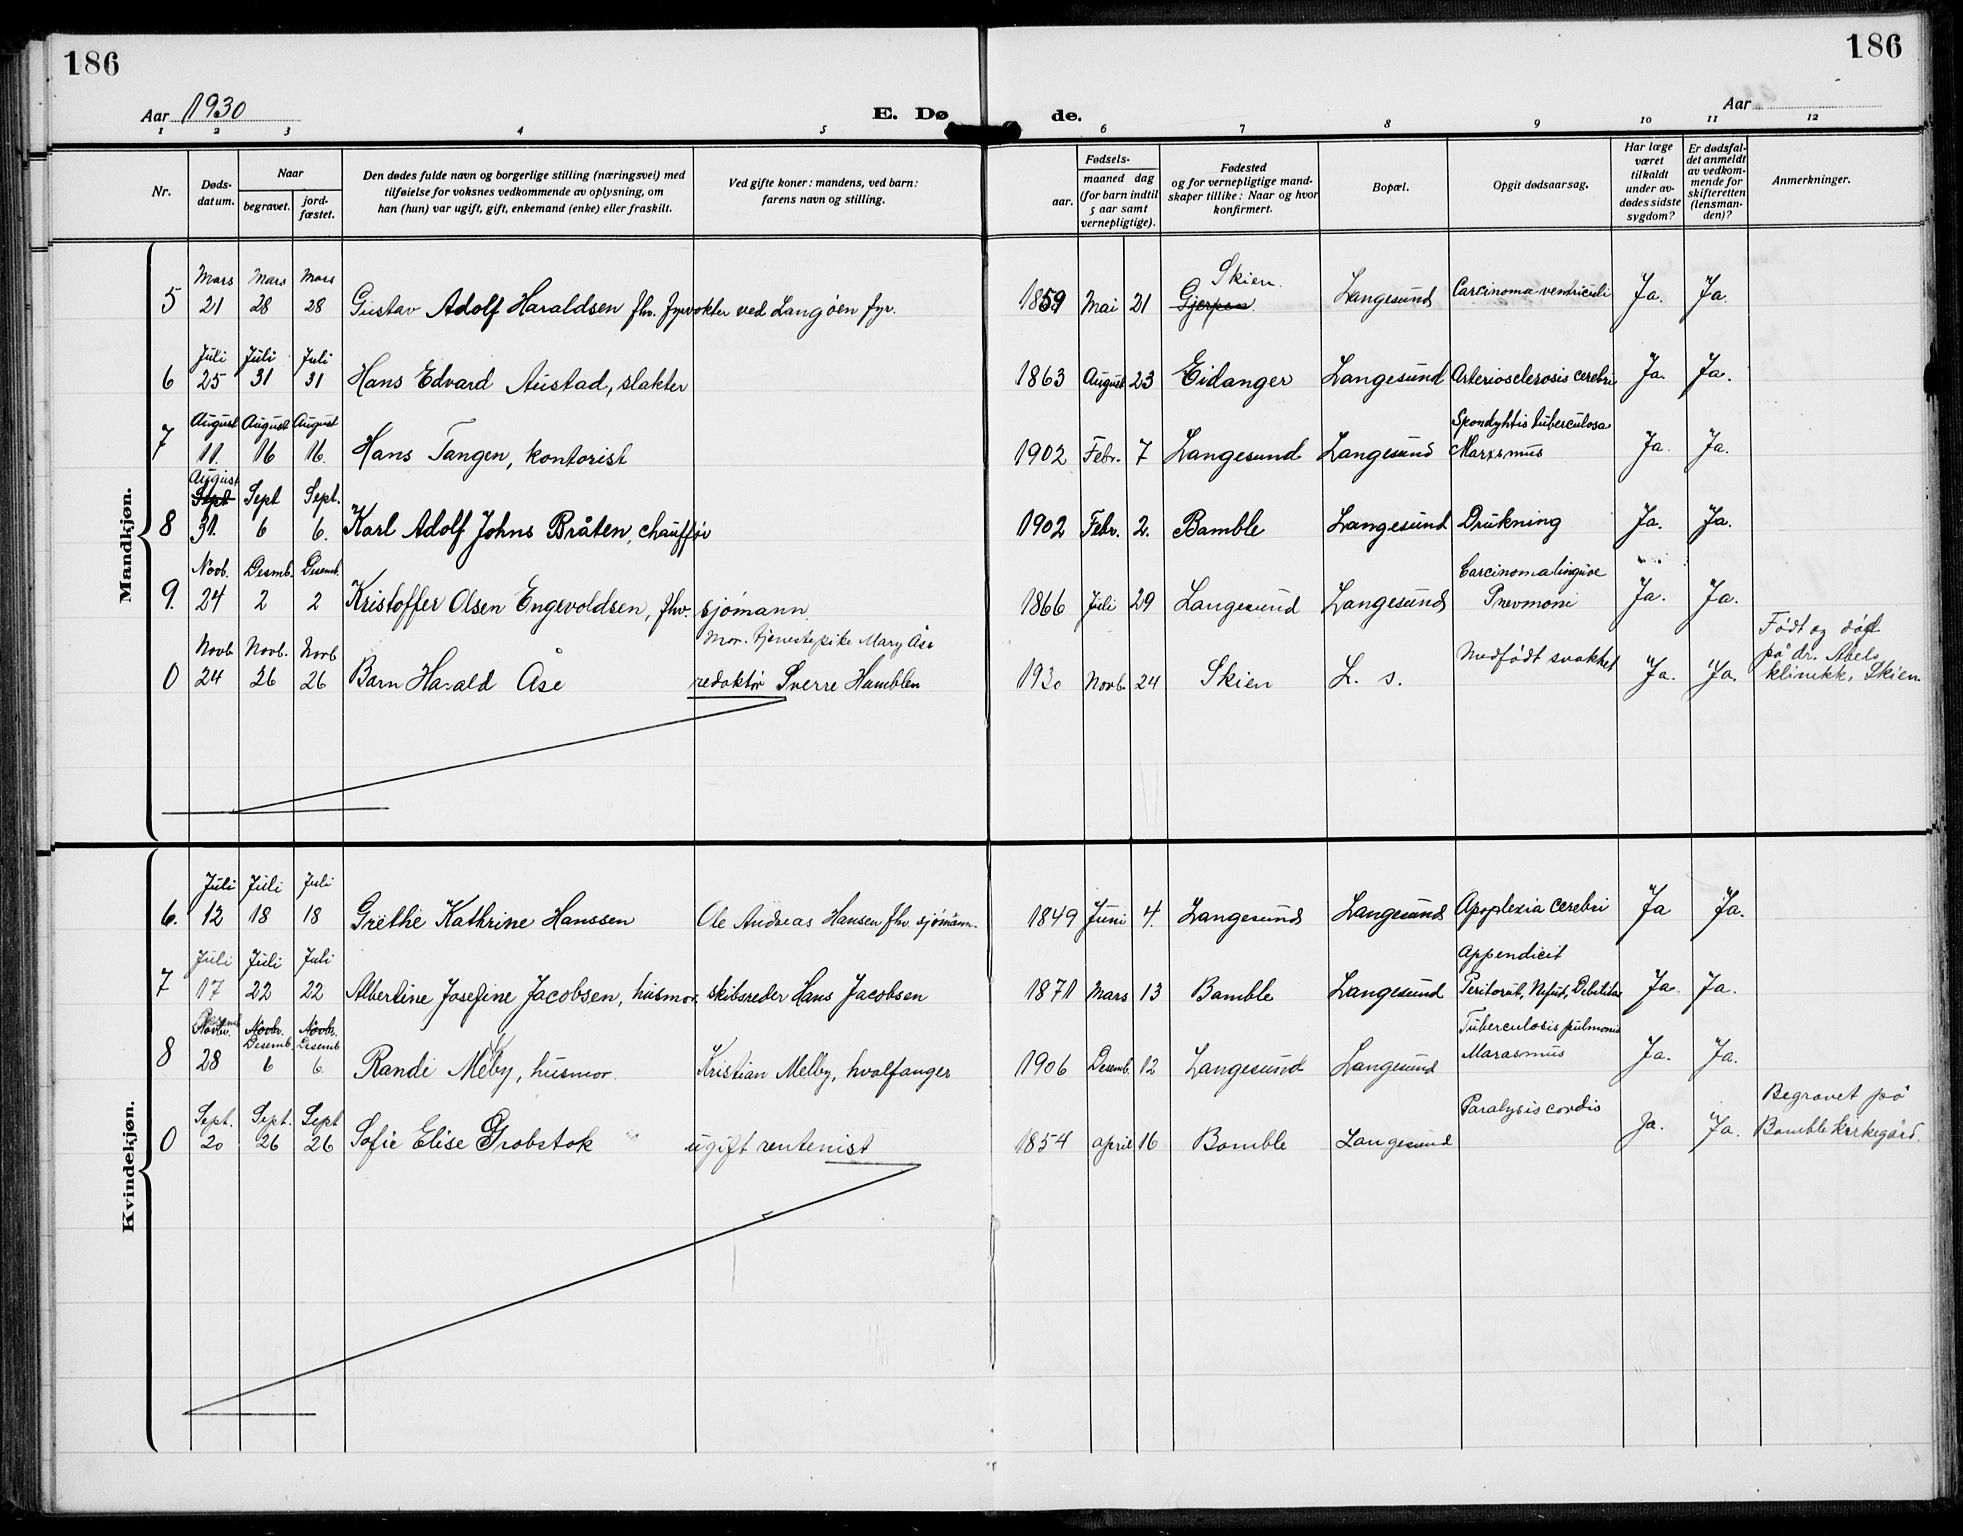 186
186
Aar 1930
E. Dø
de.
Aar
1 2 3 4 5 6 7 8 9 10 11 12
Nr.
Døds-
datum.
Naar
begravet.
jord-
fæstet.
Den dødes fulde navn og borgerlige stilling (næringsvei) med
tilføielse for voksnes vedkommende av oplysning, om
han (hun) var ugift, gift, enkemand (enke) eller fraskilt.
Ved gifte koner: mandens, ved barn:
farens navn og stilling.
Fødsels-
aar.
maaned dag
(for barn indtil
5 aar samt
vernepligtige).
Fødested
og for vernepligtige mand-
skaper tillike: Naar og hvor
konfirmert.
Bopæl.
Opgit dødsaarsag.
Har læge
været
tilkaldt
under av-
dødes sidste
sygdom?
Er dødsfal-
det anmeldt
av vedkom-
mende for
skifteretten
(lensman-
den)?
Anmerkninger.
Mandkjøn.
Mars Mars Mars Skien.
5 21 28 28 Gustav Adolf Haraldsen fhv. fyrvokter ved Langøen fyr. 1859 Mai 21 Gjerpen. Langesund Carcinoma ventriculi Ja. Ja.
Juli Juli Juli
6 25 31 31 Hans Edvard Austad, slakter 1863 August 23 Eidanger Langesund Arteriosclerosis cerebri Ja. Ja.
August August August Spondylitis tuberculosa
7 11. 16 16. Hans Tangen, kontorist 1902 Febr. 7 Langesund Langesund Ja. Ja.
August
Sept Sept Sept.
8 31. 6 6. Karl Adolf Johns Bråten, chauffør 1902 Febr. 2. Bamble Langesund Drukning Ja. Ja.
Novb. Desmb. Desemb. Carcinoma linguae
9. 24 2 2 Kristoffer Olsen Engevoldsen, fhv. sjømann. 1866 Juli 29 Langesund Langesund Pnevmoni Ja. Ja.
Novb. Novb. Novb Mor. tjenestepike Mary Åse Medfødt svakhet Født og død
på dr. Abels
0 24 26 26 Barn Harald Åse redaktør Sverre Hamblen 1930 Novb. 24 Skien L. s. Ja. Ja. klinikk, Skien.
Kvindekjøn.
Juli Juli Juli
6. 12 18 18 Grethe Kathrine Hanssen Ole Andreas Hansen fhv. sjømann. 1849 Juni 4. Langesund Langesund Apoplexia cerebri Ja Ja.
Juli Juli Juli Appendicit
7 17 22 22 Albertine Josefine Jacobsen, husmor. skibsreder Hans Jacobsen 1871 Mars 13 Bamble Langesund Ja Ja.
Novbr. Novbr. Novbr. Tuberculosis pulmonis
Desemb. Desemb
8 28 6 6 Randi Melby, husmor. Kristian Melby, hvalfanger 1906 Desemb. 12 Langesund Langesund Marasmus Ja. Ja.
Sept. Sept. Sept Paralysis cordis Begravet på
0 20 26 26 Sofie Elise Grobstok ugift rentenist 1854 april 16 Bamble Langesund Ja. Ja. Bamble kirkegård.